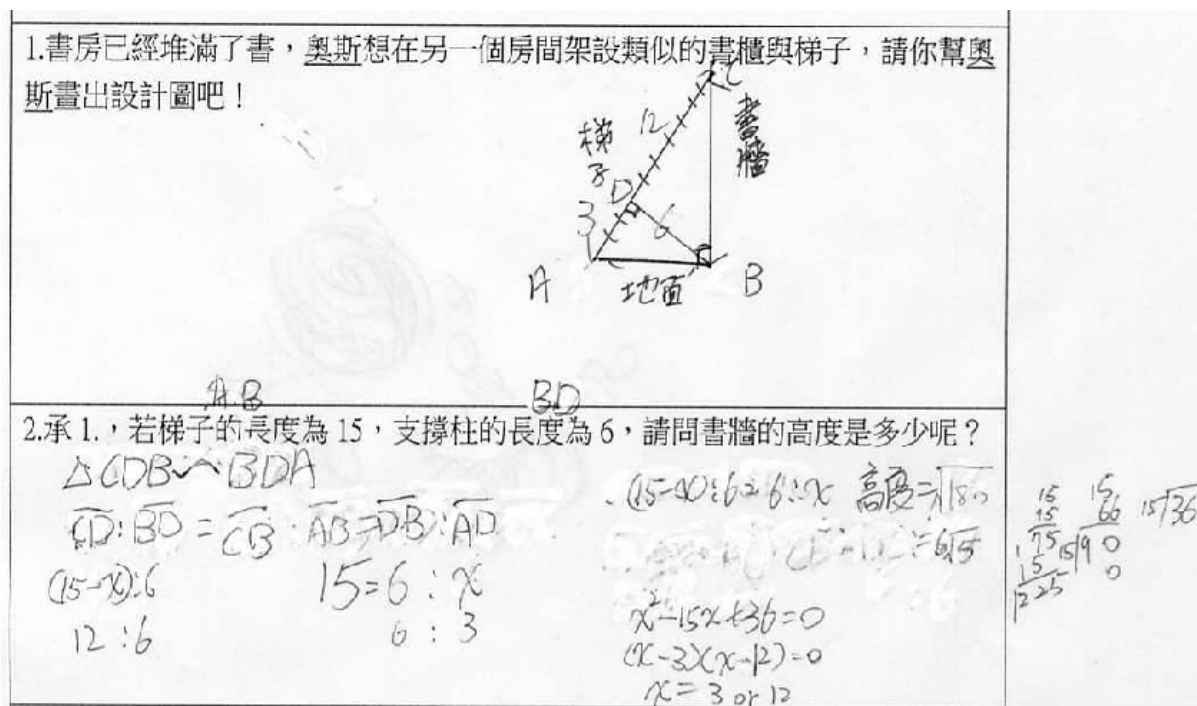 1.書房已經堆滿了書，奧斯想在另一個房間架設類似的書櫃與梯子，請你幫奧
斯畫出設計圖吧！
C
12
書牆
梯子
D
3
6
A
地面
B
AB
BD
2.承 1.，若梯子的長度為 15，支撐柱的長度為 6，請問書牆的高度是多少呢？
△CDB~BDA
CD:BD=CB:AB=DB:AD
(15-x):6
15=6:x
12:6
6:3
(15-x):6=6:x
高度=√180
=6√5
x²-15x+36=0
(x-3)(x-12)=0
x=3 or 12
15
15
75
15
225